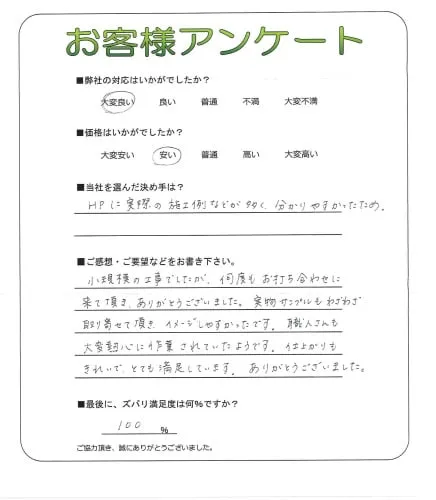 お客様アンケート
■弊社の対応はいかがでしたか?
大変良い 良い 普通 不満 大変不満
■価格はいかがでしたか?
大変安い 安い 普通 高い 大変高い
■当社を選んだ決め手は?
HPに実際の施工例などが多く、分かりやすかったため。
■ご感想・ご要望などをお書き下さい。
小規模の工事でしたが、何度もお打ち合わせに
来て頂き、ありがとうございました。実物サンプルもわざわざ
取り寄せて頂き、イメージしやすかったです。職人さんも
大変熱心に作業されていたようです。仕上がりも
きれいで、とても満足しています。ありがとうございました。
■最後に、ズバリ満足度は何%ですか?
100 %
ご協力頂き、誠にありがとうございました。